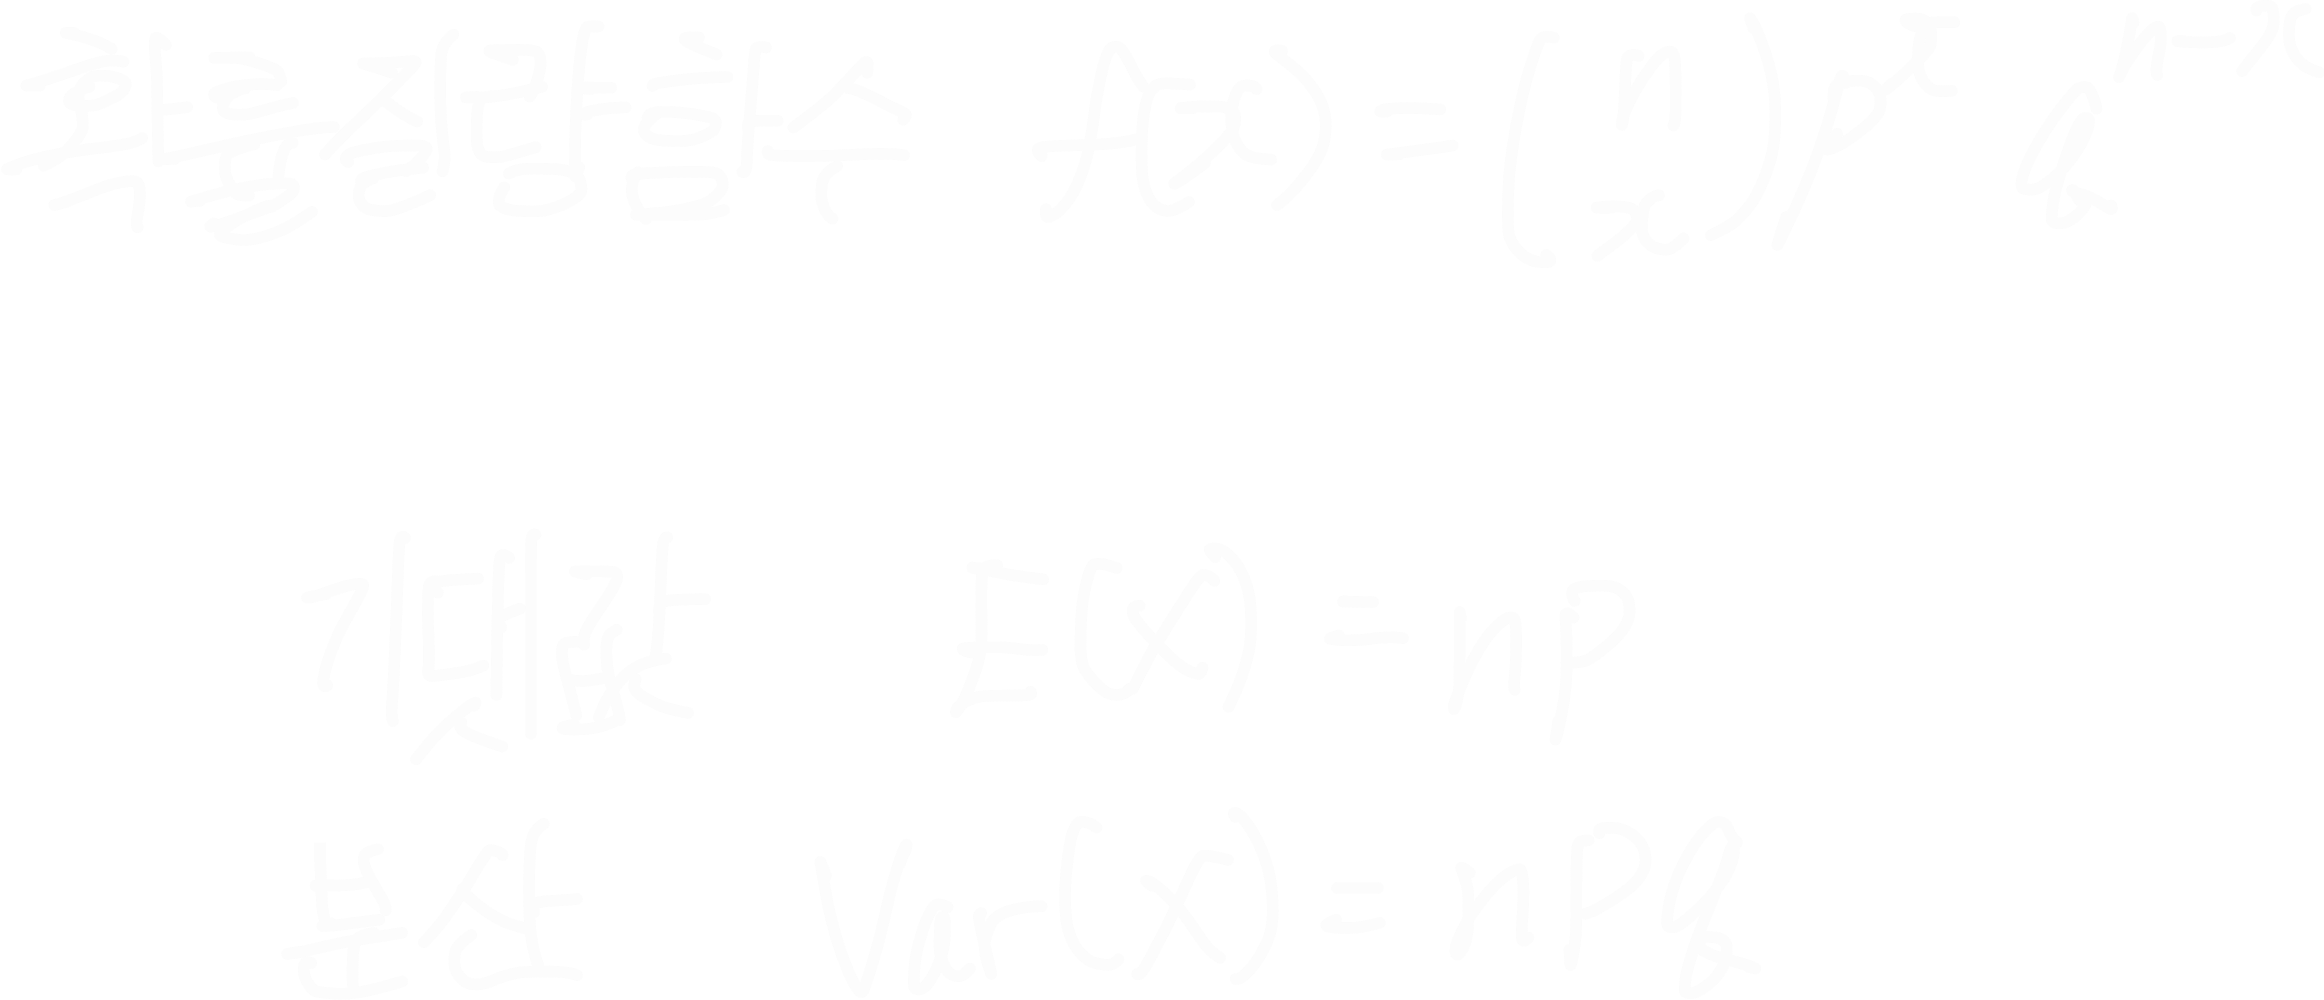 확률질량함수 f(x) = (n x) p^x q^n-x
기댓값 E(X) = np
분산 Var(X) = npq